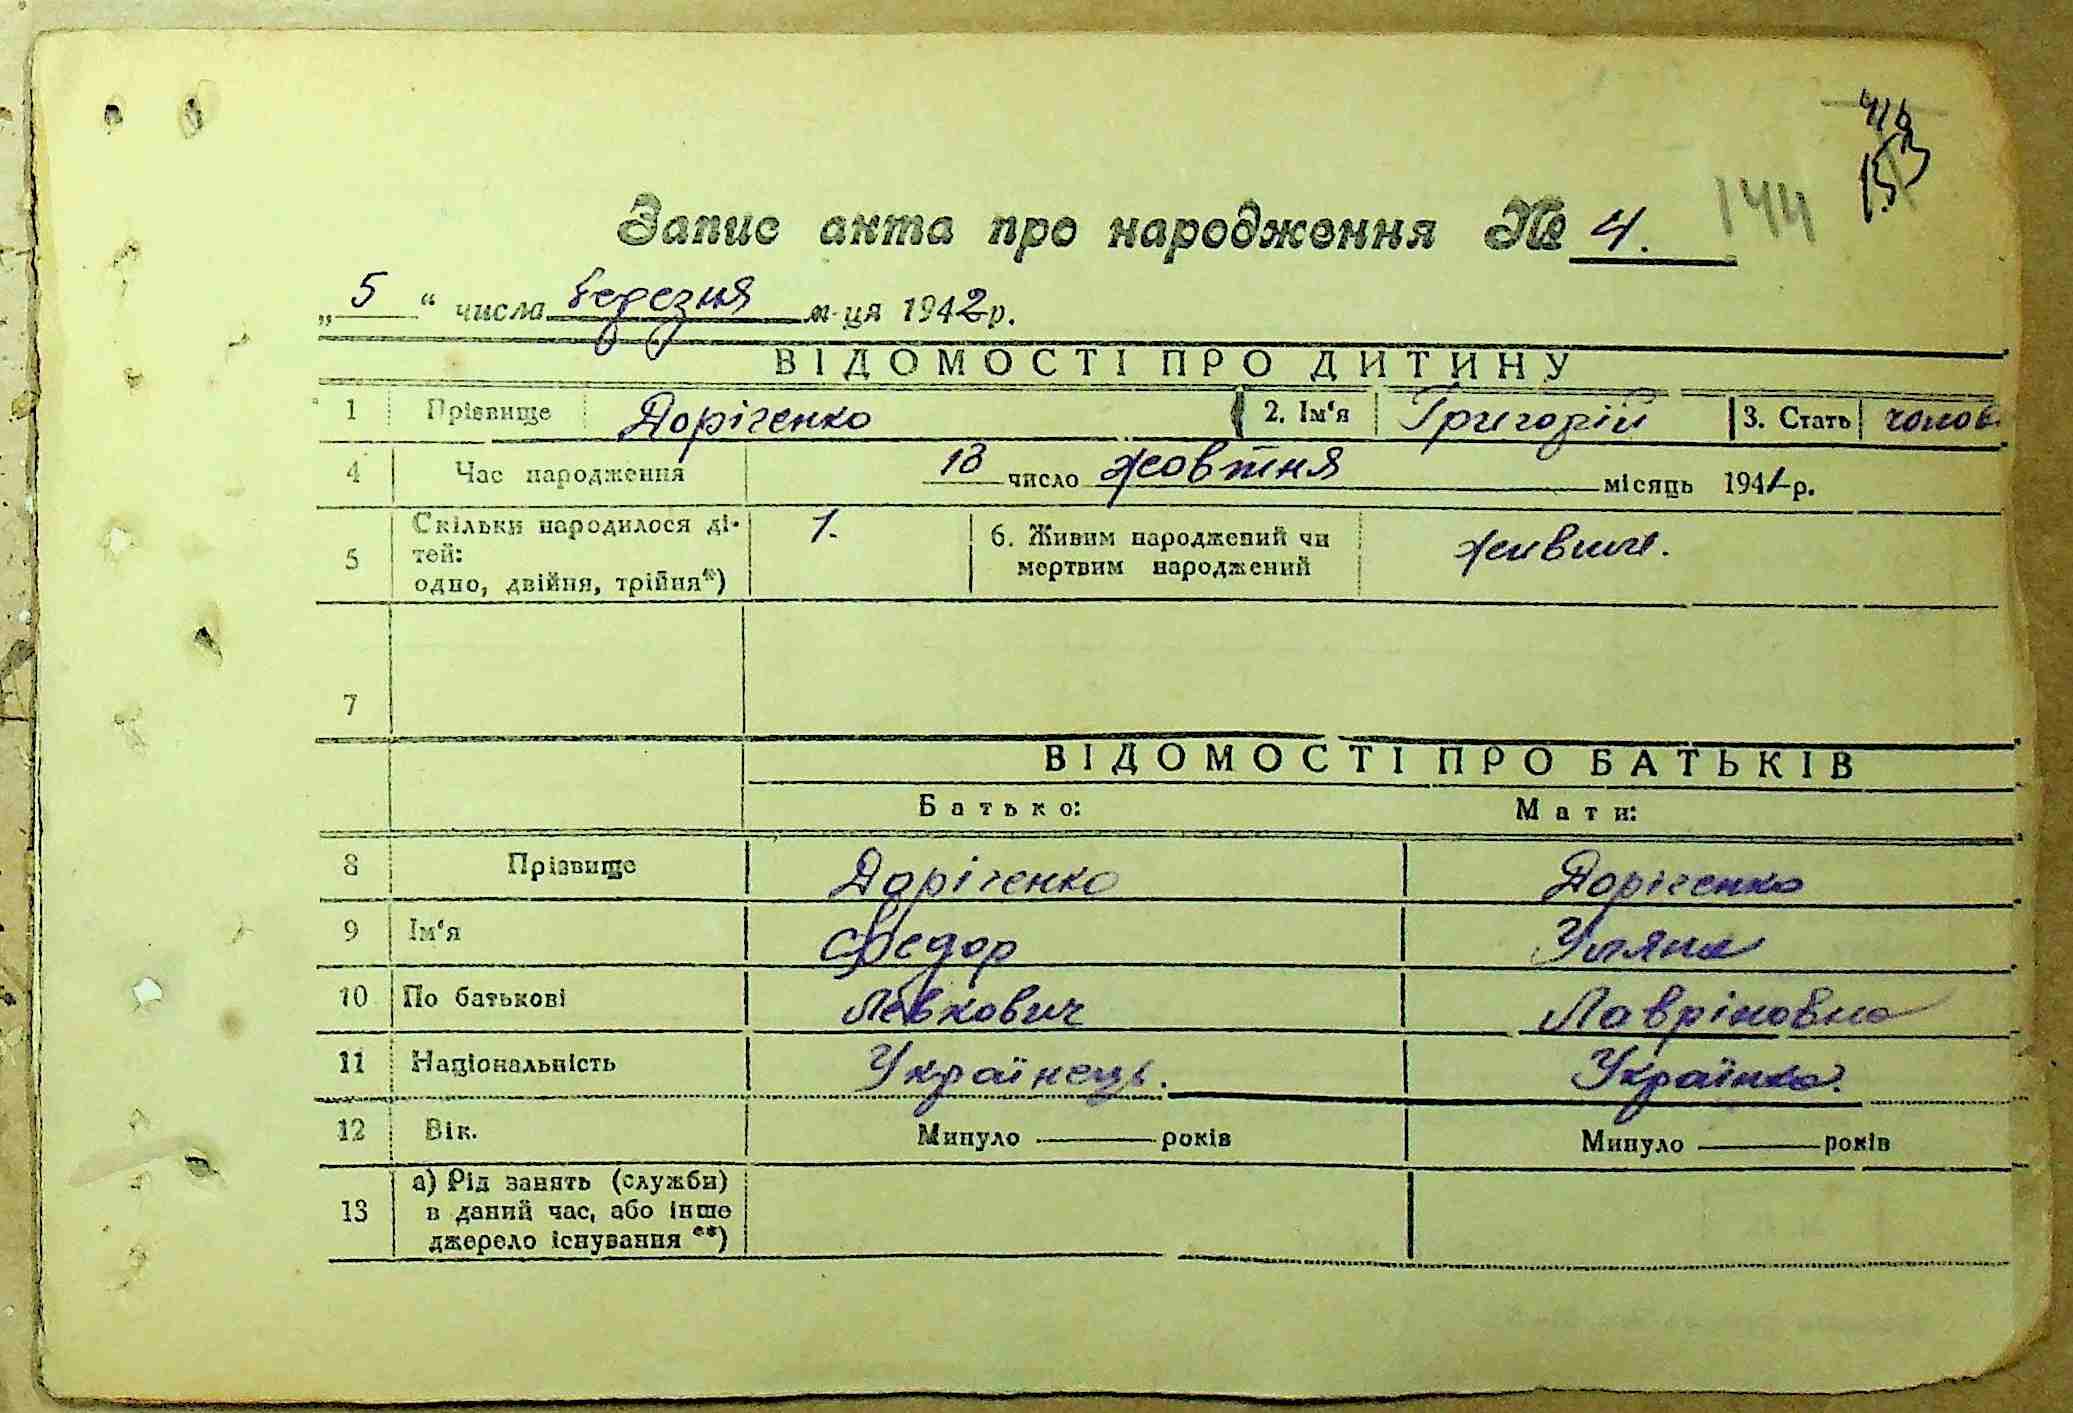 416
153
144
Запис акта про народження № 4.
„5“ числа березня м-ця 1942 р.
ВІДОМОСТІ ПРО ДИТИНУ
1 Прізвище Доріченко 2. Ім‘я Григорій 3. Стать чолов.
4 Час народження 13 число жовтня місяць 1941 р.
5 Скільки народилося ді-
тей:
одно, двійня, трійня*) 1. 6. Живим народжений чи
мертвим народжений живим.
7
ВІДОМОСТІ ПРО БАТЬКІВ
Батько: Мати:
8 Прізвище Доріченко Доріченко
9 Ім‘я Федор Уляна
10 По батькові Левкович Лавріновна
11 Національність Українець. Українка.
12 Вік. Минуло ——— років Минуло ——— років
13 а) Рід занять (служби)
в даний час, або інше
джерело існування **)